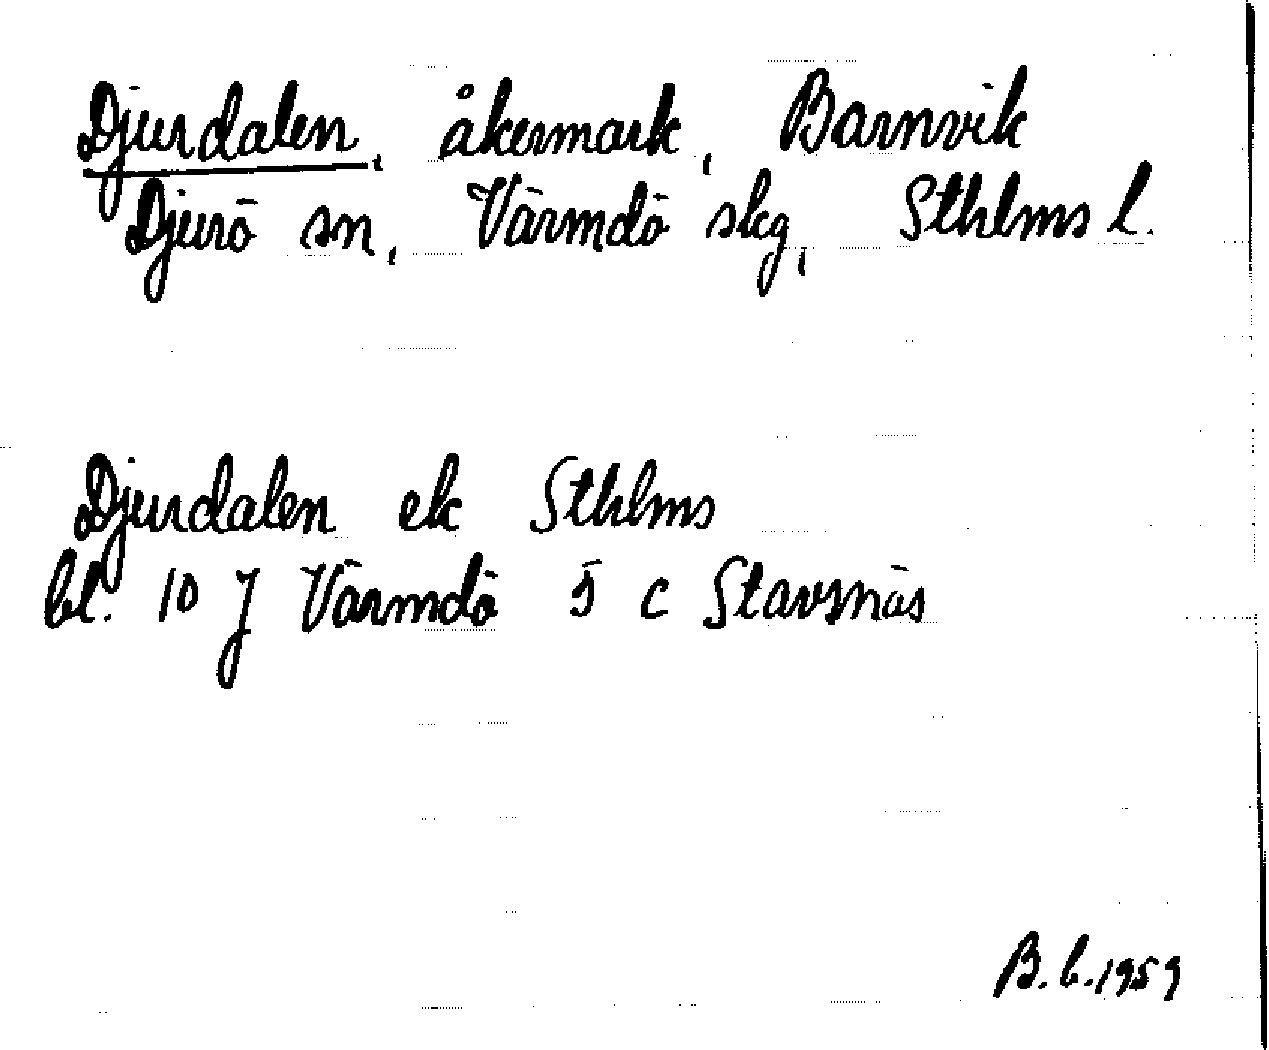 Djurdalen, åkermark, Barnvik
Djurö sn, Värmdö skg, Sthlms l.
Djurdalen ek Sthlms
bl. 10 J Värmdö 5 c Stavsnäs
B.b.1959